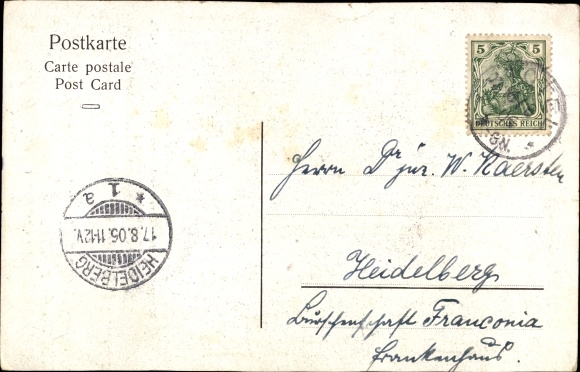 Postkarte
Carte postale
Post Card
5 5
DEUTSCHES REICH
Herrn Dr jur. W. Kaersten
Heidelberg
Burschenschaft Franconia
Frankenhaus.
HEIDELBERG
17.8.05.11-12V.
* 1 a